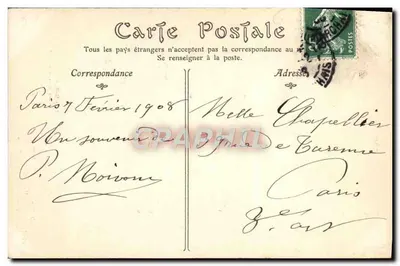 Carte Postale
Tous les pays étrangers n'acceptent pas la correspondance au
Se renseigner à la poste.
Correspondance
Adresse
Paris 7 Février 1908
Un souvenir
P.
Melle Chapellier
de Varenne
Paris
7e art